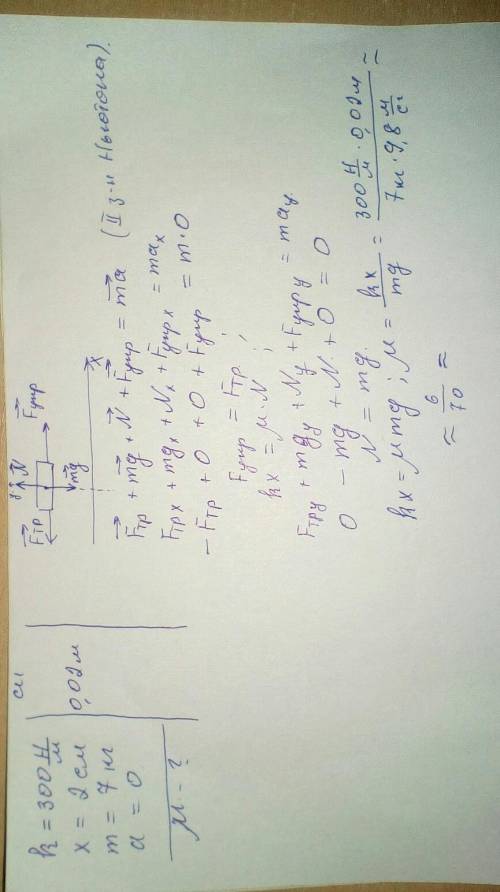 k = 300 Н/м
x = 2 см
m = 7 кг
a = 0
μ - ?
си
0,02 м
F⃗тр
y
N⃗
F⃗упр
mg⃗
x⃗
F⃗тр + mg⃗ + N⃗ + F⃗упр = ma⃗ (II з-н Ньютона).
Fтрx + mgx + Nx + Fупрx = max
-Fтр + 0 + 0 + Fупр = m·0
Fупр = Fтр ;
kx = μ·N ;
Fтрy + mgy + Ny + Fупрy = may.
0 - mg + N + 0 = 0
N = mg.
kx = μmg ; μ = kx/mg = (300 Н/м · 0,02 м)/(7 кг · 9,8 м/с²) ≈
≈ 6/70 ≈